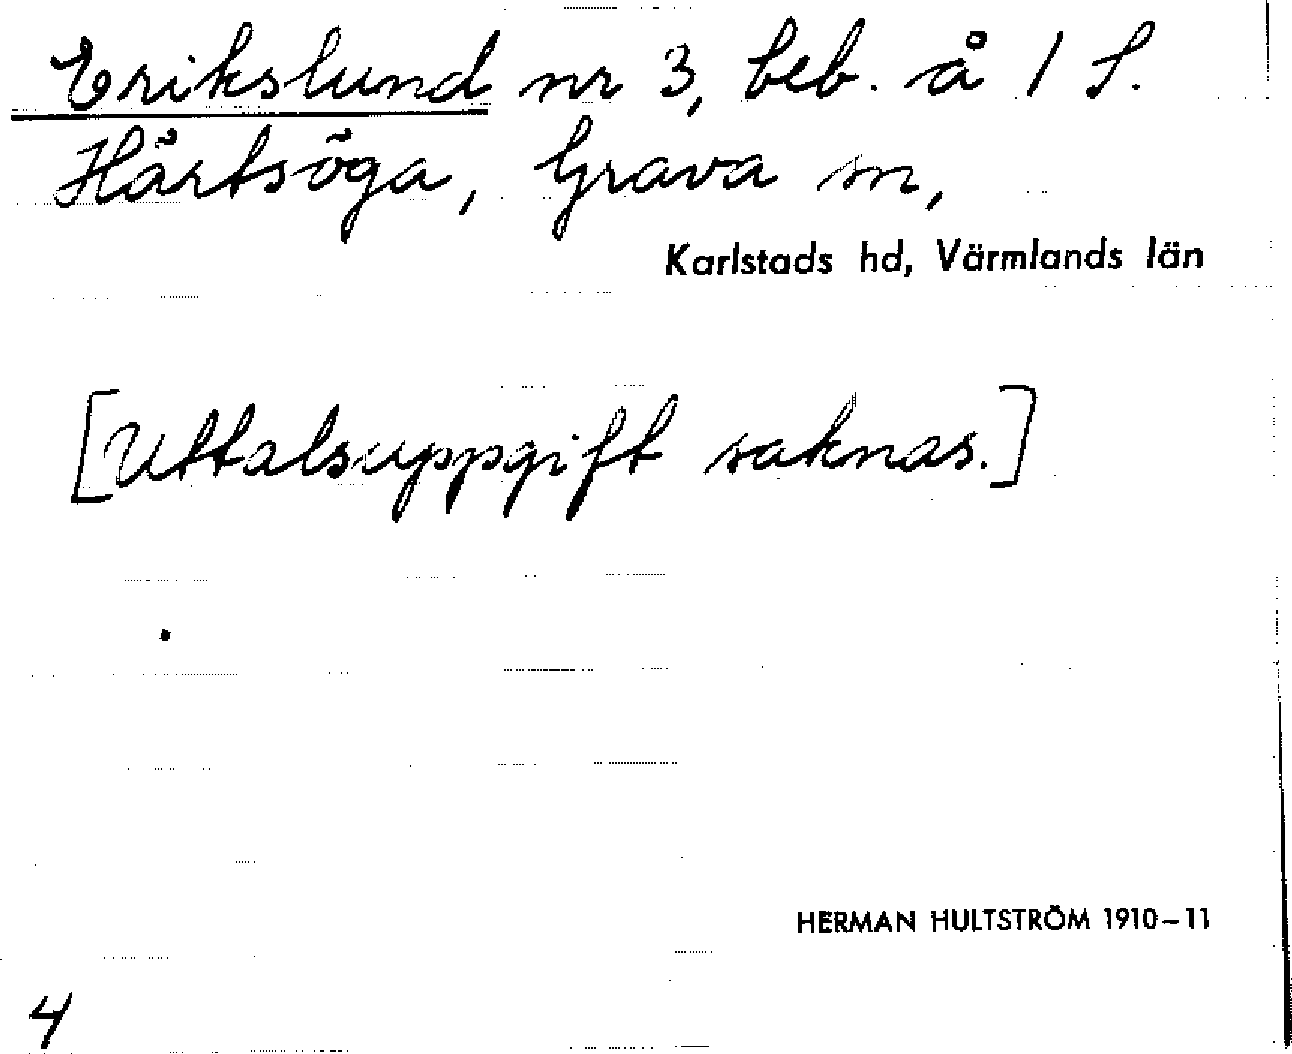 Erikslund nr 3, beb. å 1 S.
Hårtsöga, Grava sn,
Karlstads hd, Värmlands län
[Uttalsuppgift saknas.]
HERMAN HULTSTRÖM 1910–11
4